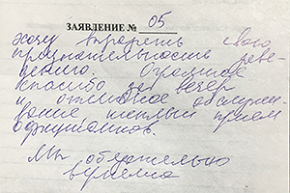 ЗАЯВЛЕНИЕ № 05
хочу выразить свою
признательность
Огромное
спасибо за вечер
и отличное обслужи-
вание теплый прием
официантов.
Мы обязательно
вернемся